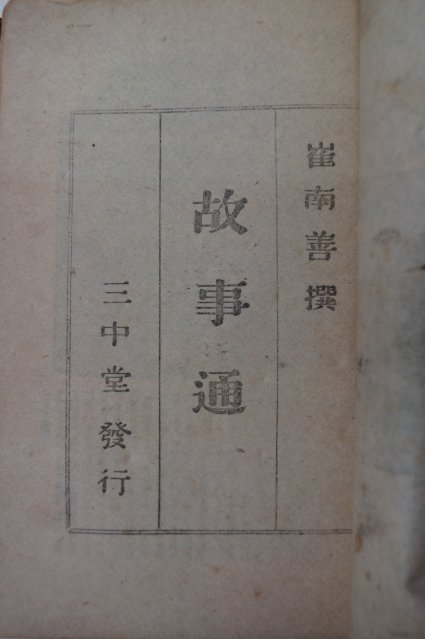 崔南善撰
故事通
三中堂發行